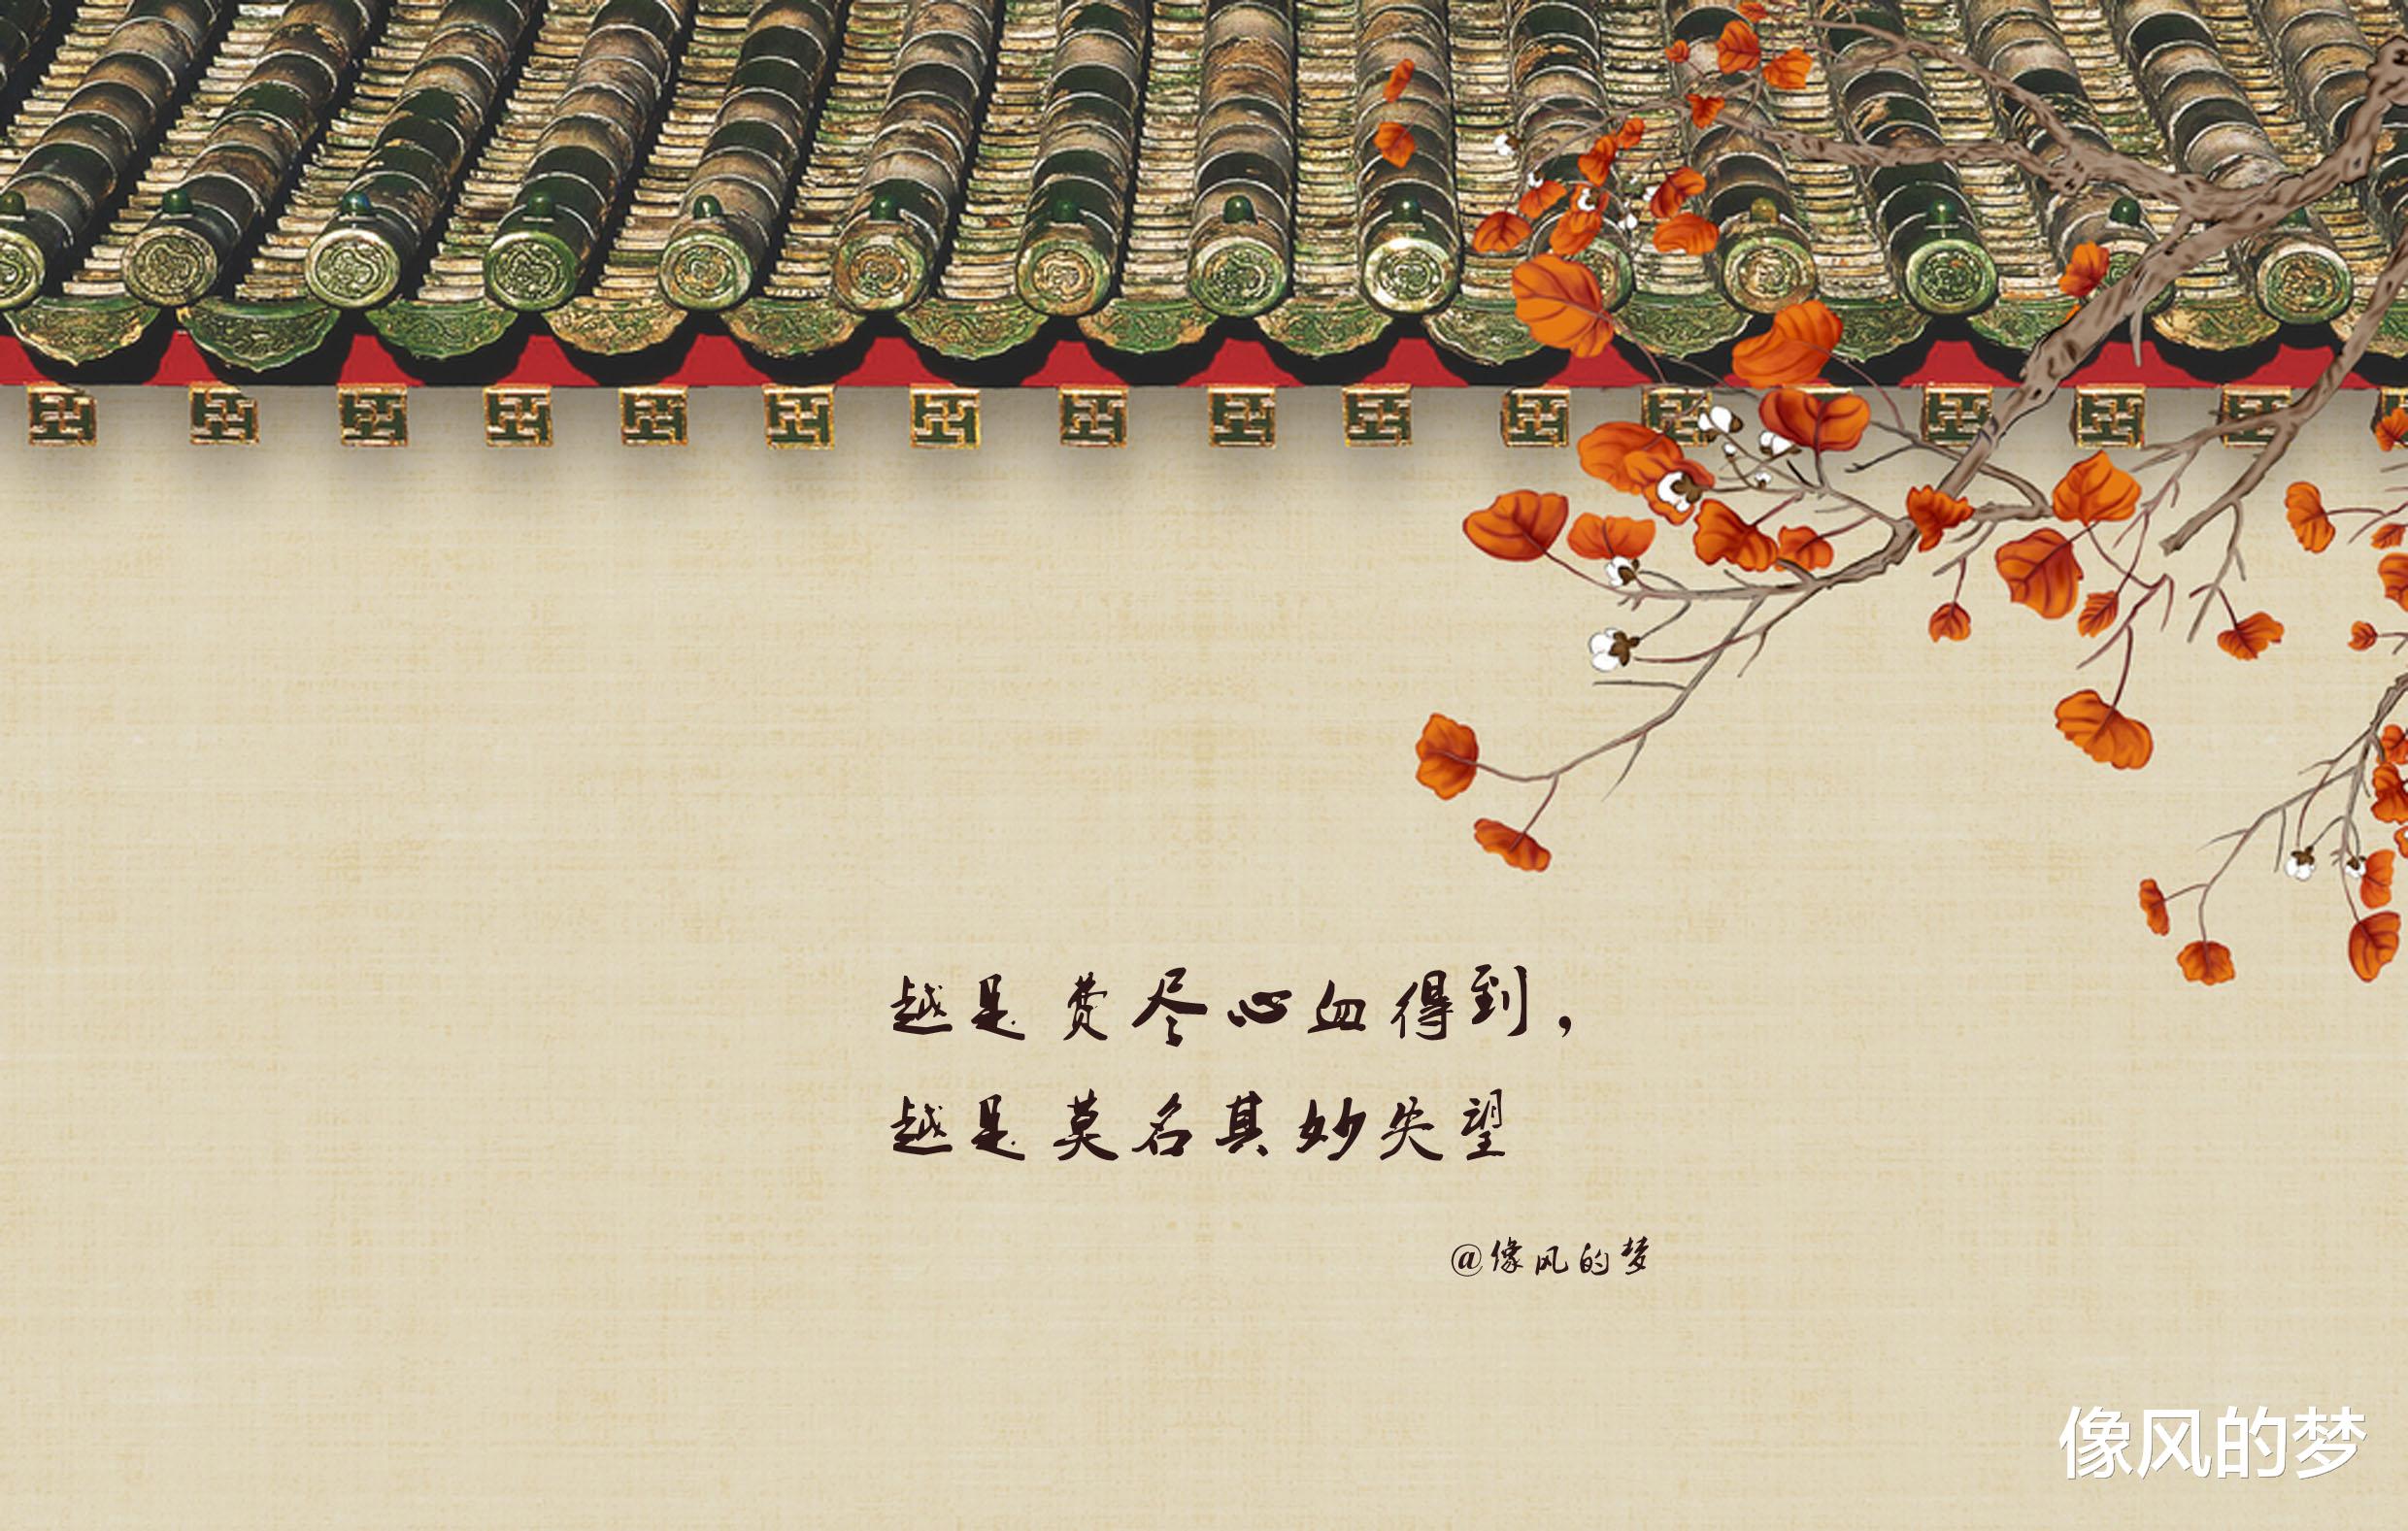 越是费尽心血得到，
越是莫名其妙失望
@像风的梦
像风的梦